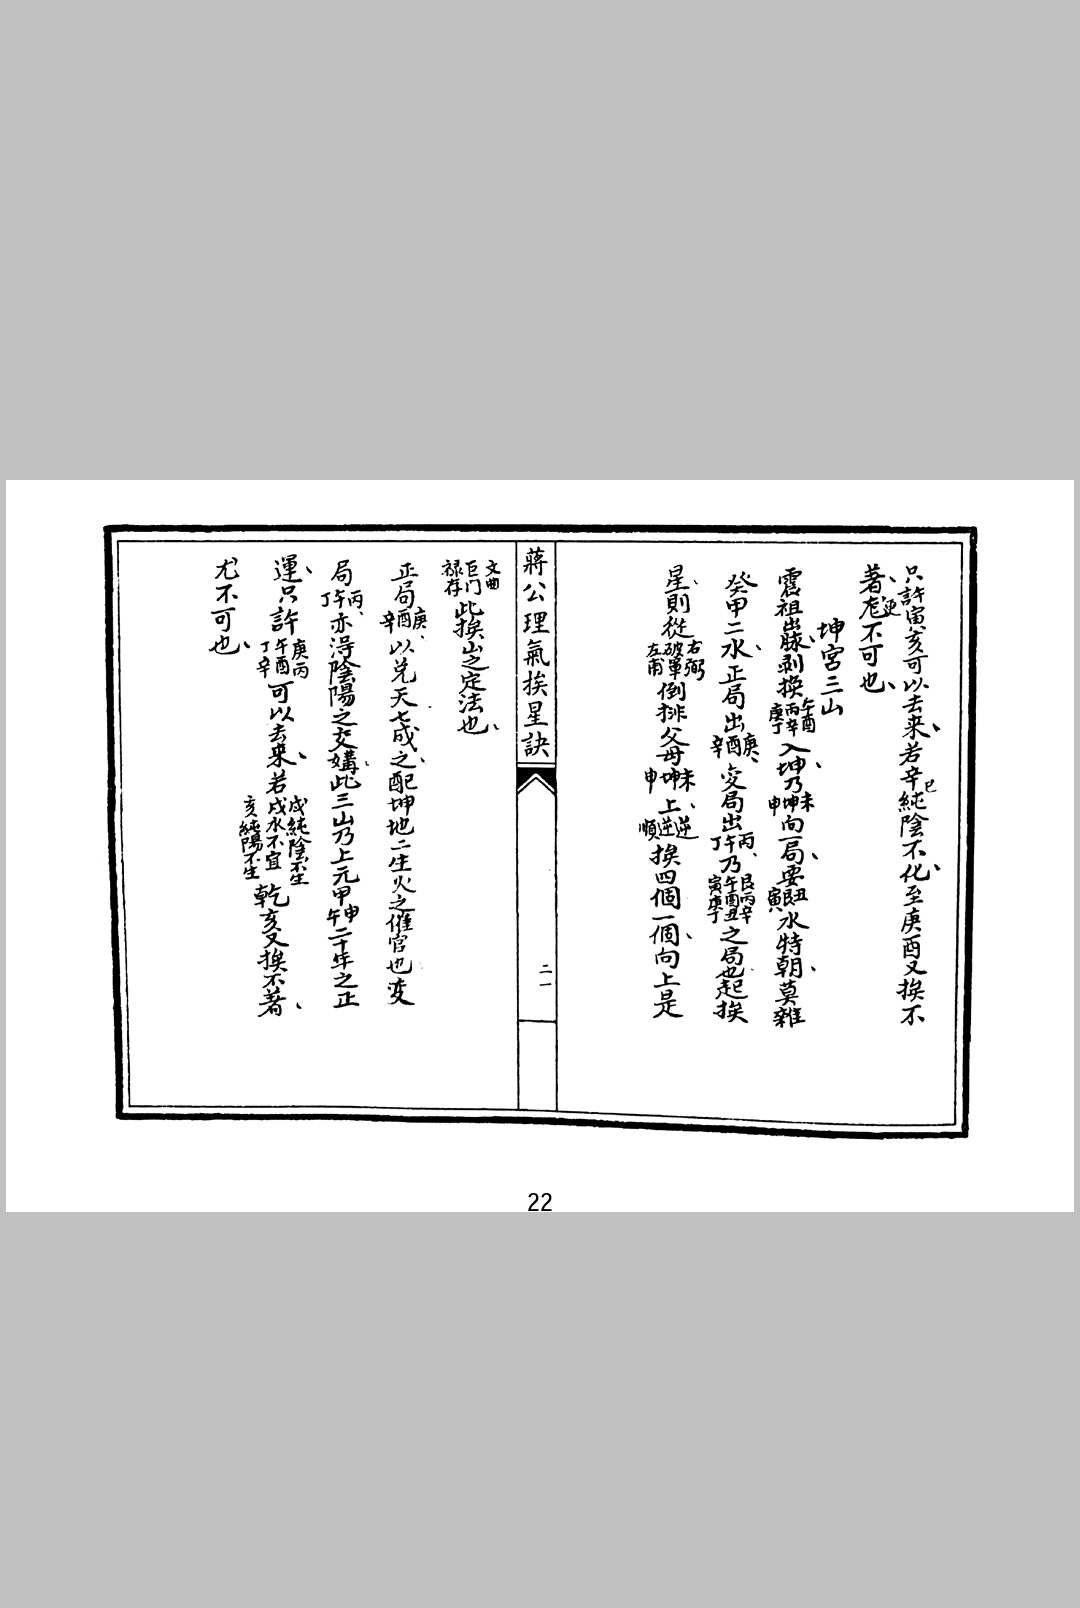 只許寅亥可以去来、若辛巳純陰不化、至庚酉又挨不
著、尨更不可也、
坤宮三山
震祖出脉、剥換午酉丙辛庚丁入坤、乃未坤申向一局、要丑艮寅水特朝、莫雜
癸甲二水、正局出庚酉辛、变局出丙午丁、乃艮丙辛午酉丑寅庚丁之局也、起挨
星、則從右弼破軍左甫倒排父母未坤申上、逆逆順挨四個一個、向上是
蔣公理氣挨星訣
二一
文曲巨门禄存此挨山之定法也、
正局庚酉辛、以兌天七成之、配坤地二生火之催官也、变
局丙午丁、亦淂陰陽之交媾、此三山乃上元甲申午二十年之正
運、只許庚丙午酉丁辛可以去来、若戌純陰不生戌水不宜亥純陽不生乾亥又挨不著、
尤不可也、
22